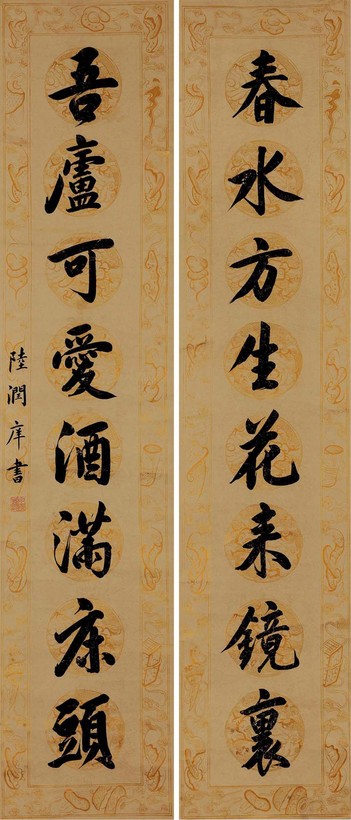 春水方生花来鏡裏
吾廬可愛酒滿床頭
陸潤庠書